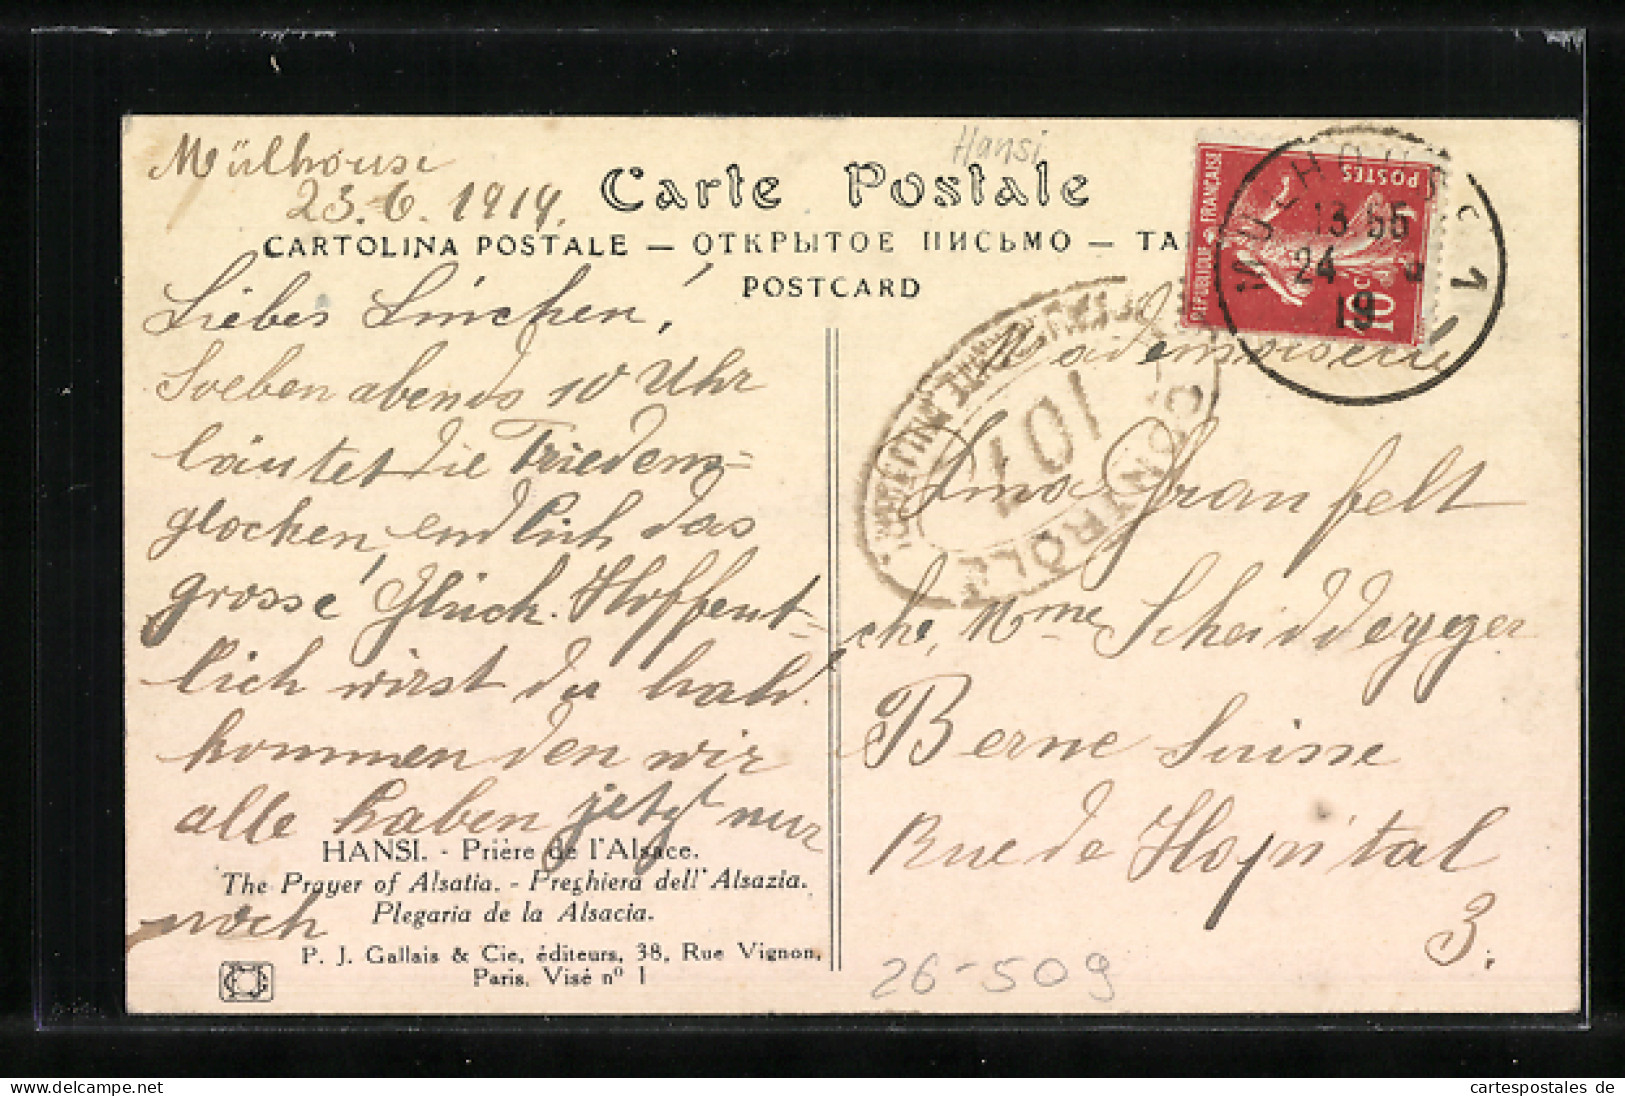 Hansi
Mülhouse
23.6.1919.
Carte Postale
CARTOLINA POSTALE — ОТКРЫТОЕ ПИСЬМО —
POSTCARD
Liebes Linchen,
Soeben abends 10 Uhr
läutet die Friedens-
glocken, endlich das
grosse Glück. Hoffent-
lich wirst du bald
kommen den wir
alle haben jetzt nur
noch
HANSI. - Prière de l'Alsace.
The Prayer of Alsatia. - Preghiera dell' Alsazia.
Plegaria de la Alsacia.
P. J. Gallais & Cie, éditeurs, 38, Rue Vignon,
Paris. Visé nº 1
REPUBLIQUE FRANÇAISE
POSTES
10 c
MULHOUSE 1
13 55
24
19
CONTRÔLE
101
Mademoiselle
Lina Granfelt
che, Mme Scheiddergger
Berne Suisse
Rue de Hopital
3.
26-509
cartespostales de